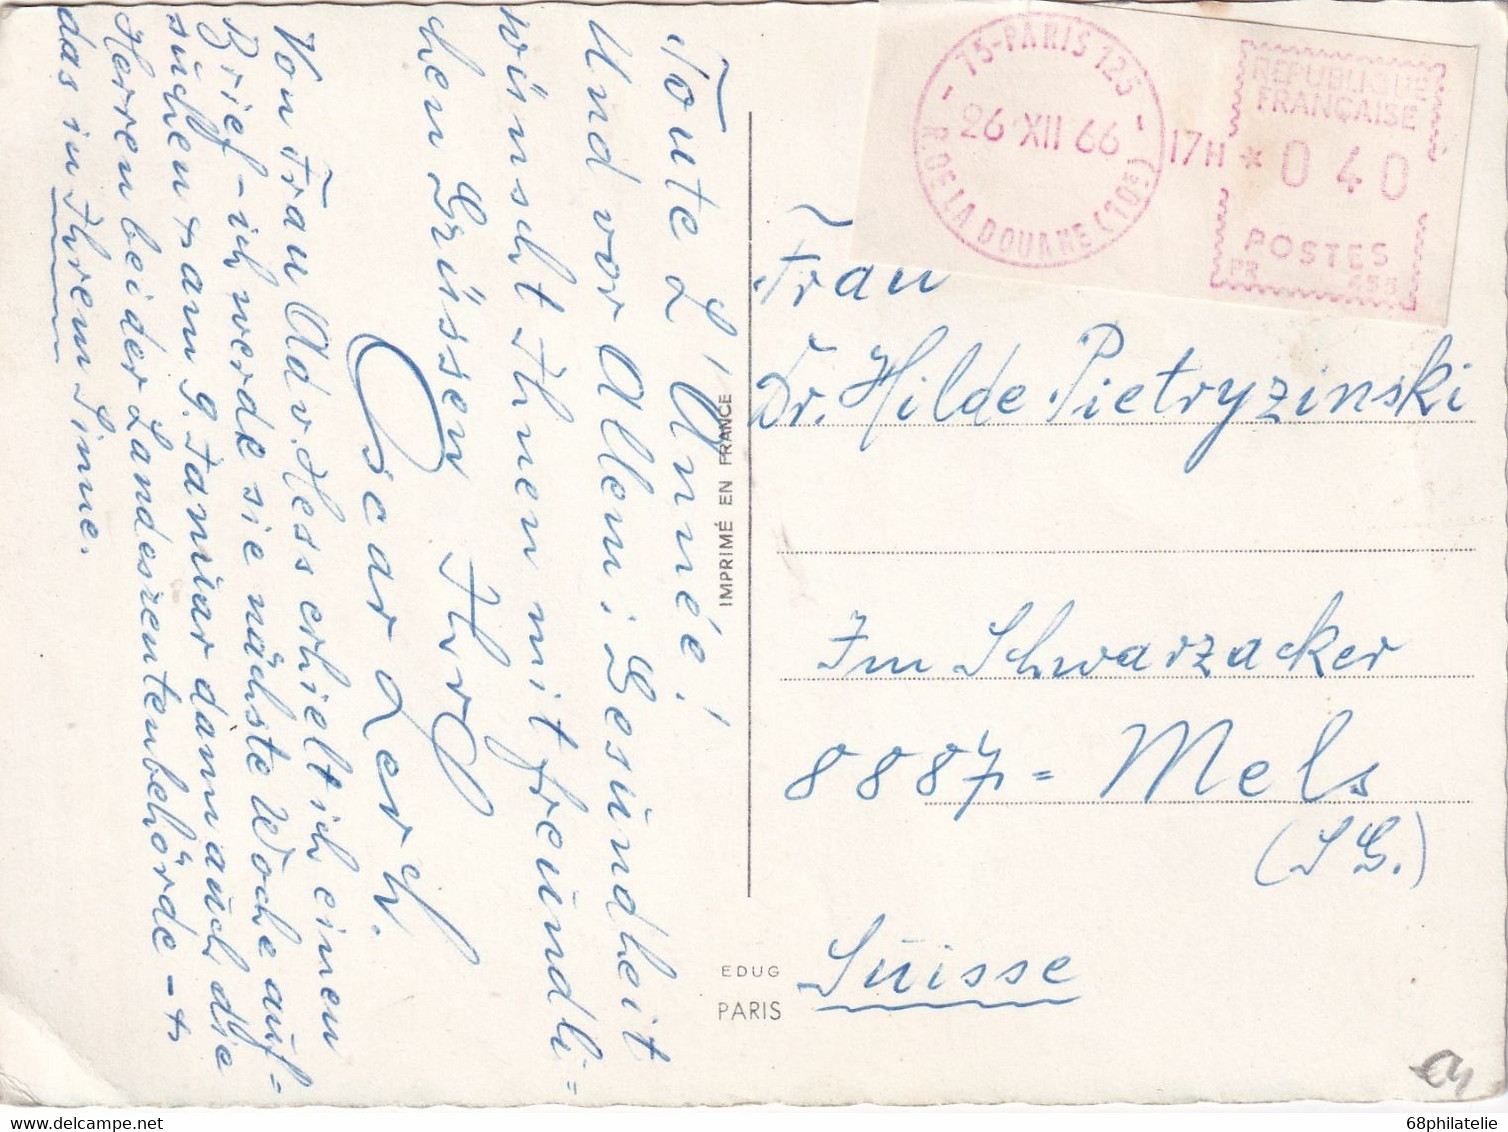 Toute L'Année!
Und vor Allem: Gesundheit
wünscht Ihnen mit freundli=
chen Grüssen Ihr
Oscar Lerch.
Von Frau Adv. Hess erhielt ich einen
Brief - ich werde sie nächste Woche auf=
suchen & am 9. Januar dann auch die
Herren bei der Landeszentenbehörde - &
das in Ihrem Sinne.
75-PARIS 125
26 XII 66
R. DE LA DOUANE (10e)
17H
REPUBLIQUE
FRANÇAISE
* 0 40
POSTES
PR
Frau
Dr. Hilde Pietryzinski
Im Schwarzacker
8887 = Mels
(SG.)
Suisse
IMPRIMÉ EN FRANCE
EDUG
PARIS
68philatelie